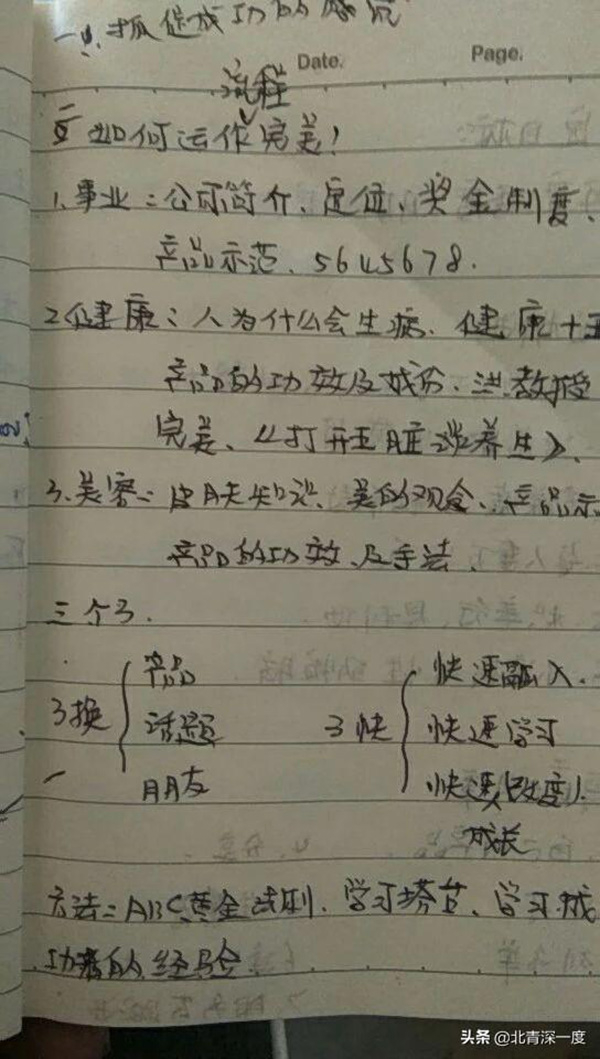 抓住成功的感觉
Date. Page.
流程
如何运作完美!
1.事业:公司简介、定位、奖金制度、
产品示范、5645678.
2健康:人为什么会生病、健康十五
产品的功效及成份、洪教授
完美、《打开五脏谈养生》、
3.美容:皮肤知识、美的观念、产品示
产品的功效、及手法、
三个3.
3换 产品 3快 快速融入.
话题 快速学习
朋友 快速改变
成长
方法:ABC黄金法则、学习搭台、学习成
功者的经验
头条 @北青深一度